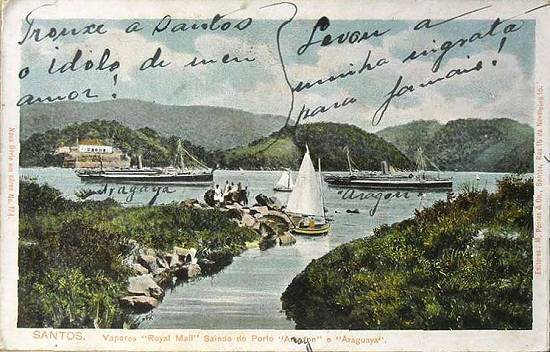 Trouxe a Santos
o idolo de meu
amor!
Levou a
minha ingrata
para jamais!
Araguaya
"Aragon"
SANTOS. Vapores "Royal Mail" Sahindo do Porto "Aragon" e "Araguaya".
Editores: M. Pontes & Co., Santos, Rua 15 de Novembro 15.